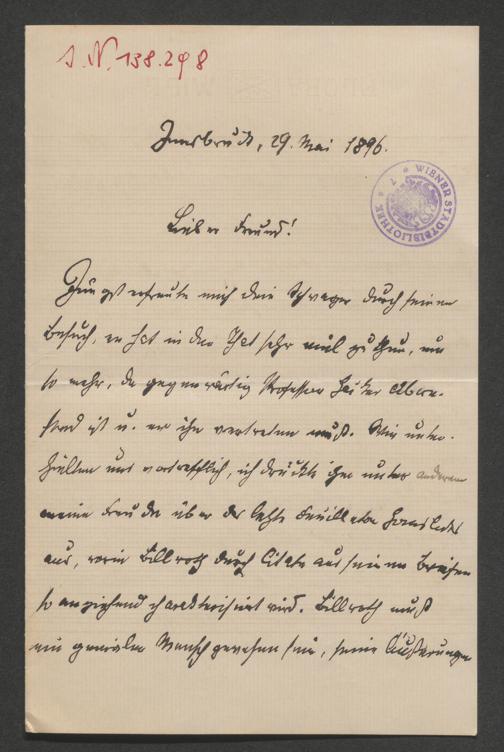 J. N. 138.298
Innsbruck, 29. Mai 1896.
* WIENER STADTBIBLIOTHEK *
Lieber Freund!
Jüngst erfreute mich dein Schwager durch seinen
Besuch, er hat in der That sehr viel zu thun, um
so mehr, da gegenwärtig Professor abwe-
send ist u. er ihn vertreten muß. Wir unter-
hielten uns vortrefflich, ich drückte ihm unter anderem
meine Freude über das letzte Feuilleton Hanslicks
aus, worin Billroth durch Citate aus seinen Briefen
so anziehend charakterisirt wird. Billroth muß
ein genialer Mensch gewesen sein, seine Äußerungen